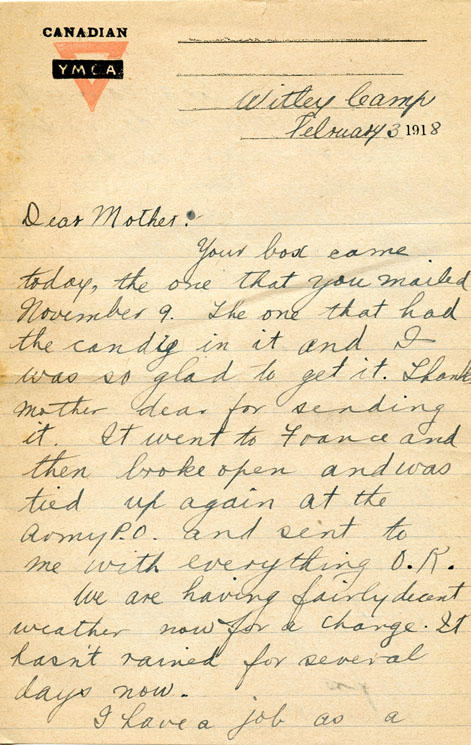 CANADIAN
YMCA
Witley Camp
February 3 1918
Dear Mother:
Your box came
today, the one that you mailed
November 9. The one that had
the candie in it and I
was so glad to get it. Thank
mother dear for sending
it. It went to France and
then broke open and was
tied up again at the
Army P.O. and sent to
me with everything O.K.
We are having fairly decent
weather now for a change. It
hasn't rained for several
days now.
I have a job as a